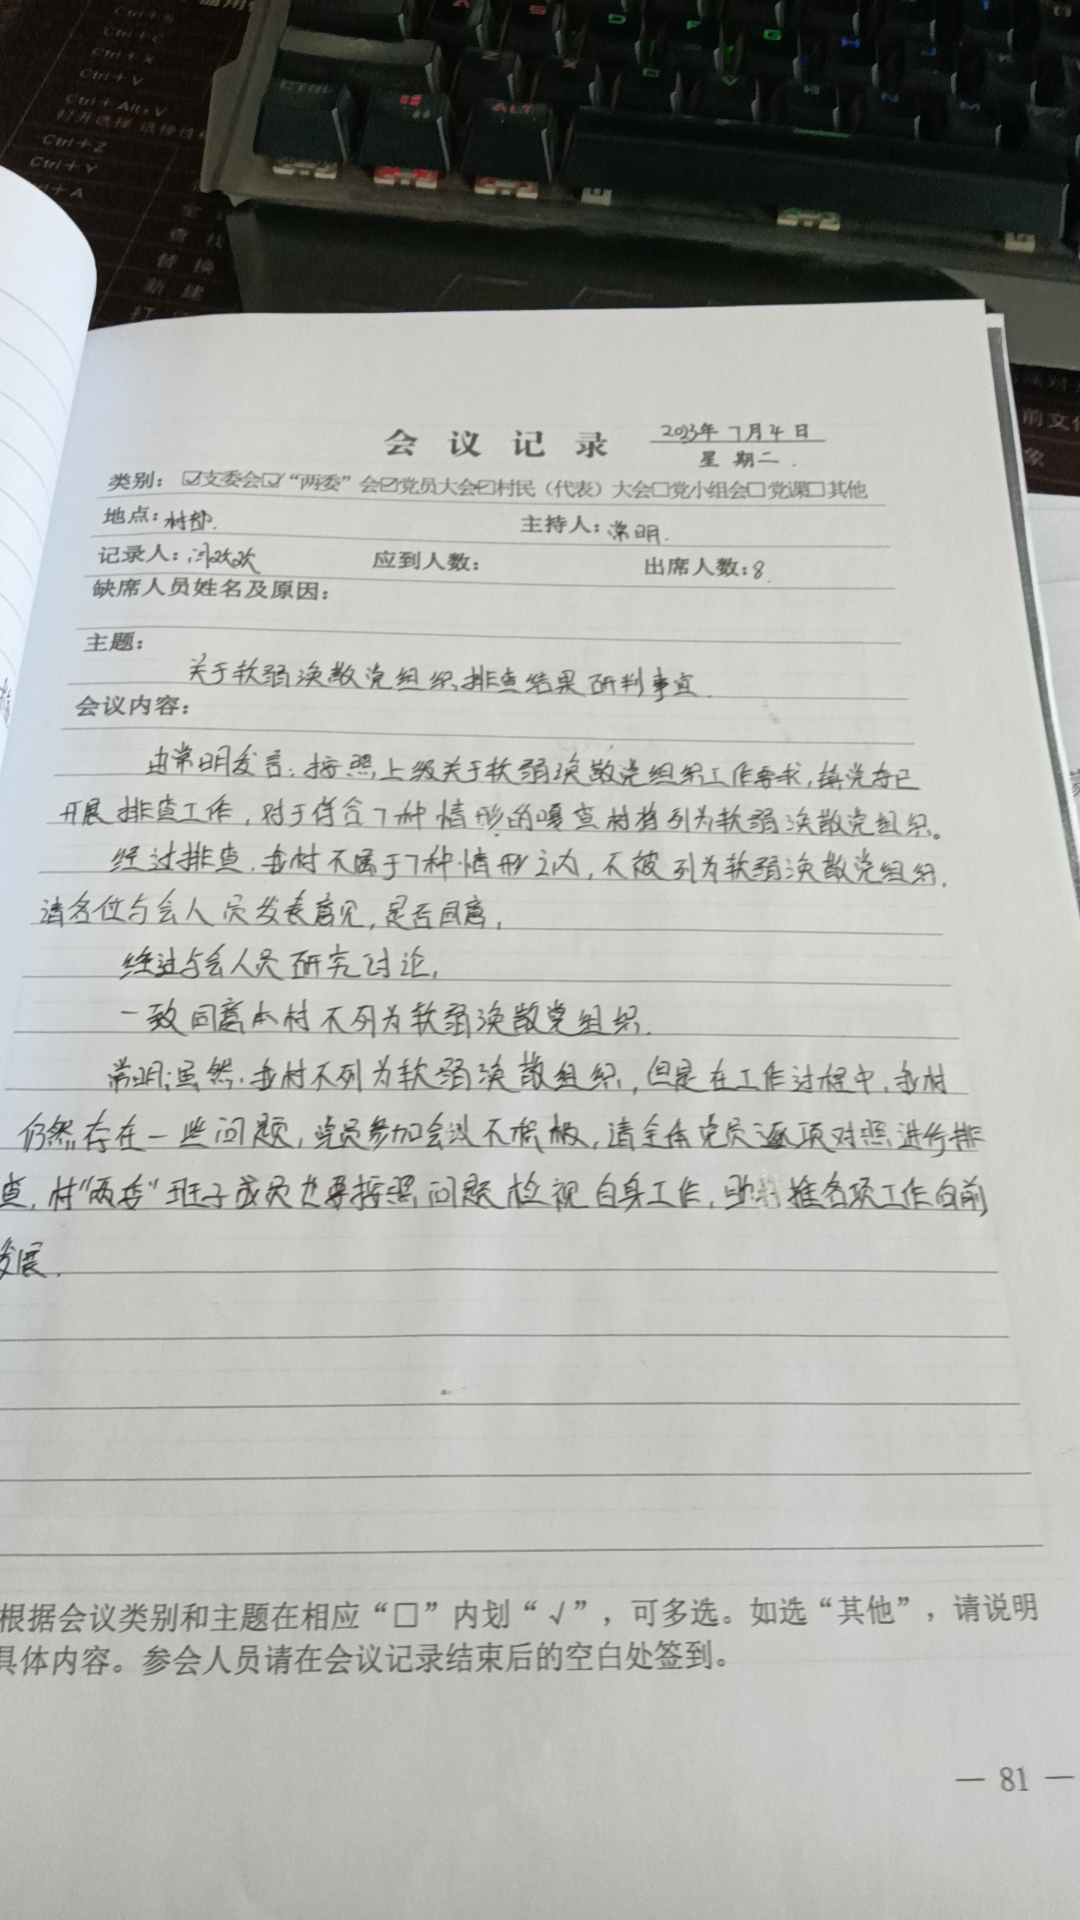 Ctrl + C
Ctrl + X
Ctrl + V
Ctrl + Alt + V
打开选择 选择性
Ctrl + Z
Ctrl + Y
+ A
全
查 找
替 换
新 建
打
ALT
前文件
象
会 议 记 录
2023年 7月 4 日
星 期 二 .
类别：☑支委会☑“两委”会☑党员大会☑村民（代表）大会□党小组会□党课□其他
地点：村部. 主持人：常明.
记录人： 欢欢 应到人数： 出席人数：8.
缺席人员姓名及原因：
主题：
关于软弱涣散党组织排查结果研判事宜.
会议内容：
由常明发言：按照上级关于软弱涣散党组织工作要求，镇党委已
开展排查工作，对于符合7种情形的嘎查村将列为软弱涣散党组织。
经过排查，我村不属于7种情形之内，不被列为软弱涣散党组织.
请各位与会人员发表意见，是否同意，
经过与会人员研究讨论，
一致同意本村不列为软弱涣散党组织.
常明：虽然，我村不列为软弱涣散组织，但是在工作过程中，我村
仍然存在一些问题，党员参加会议不积极，请全体党员逐项对照进行排
查，村“两委”班子成员也要按照问题检视自身工作， 推各项工作向前
发展.
根据会议类别和主题在相应“□”内划“√”，可多选。如选“其他”，请说明
具体内容。参会人员请在会议记录结束后的空白处签到。
— 81 —